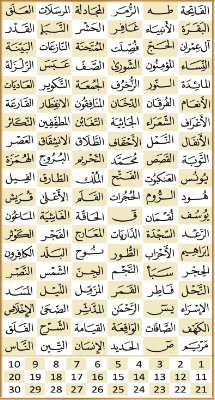 الفاتحة طه الزمر المجادلة المرسلات العلق
البقرة الأنبياء غافر الحشر النبأ القدر
آل عمران الحج فصلت الممتحنة النازعات البينة
النساء المؤمنون الشورى الصف عبس الزلزلة
المائدة النور الزخرف الجمعة التكوير العاديات
الأنعام الفرقان الدخان المنافقون الانفطار القارعة
الأعراف الشعراء الجاثية التغابن المطففين التكاثر
الأنفال النمل الأحقاف الطلاق الانشقاق العصر
التوبة القصص محمد التحريم البروج الهمزة
يونس العنكبوت الفتح الملك الطارق الفيل
هود الروم الحجرات القلم الأعلى قريش
يوسف لقمان ق الحاقة الغاشية الماعون
الرعد السجدة الذاريات المعارج الفجر الكوثر
إبراهيم الأحزاب الطور نوح البلد الكافرون
الحجر سبأ النجم الجن الشمس النصر
النحل فاطر القمر المزمل الليل المسد
الإسراء يس الرحمن المدثر الضحى الإخلاص
الكهف الصافات الواقعة القيامة الشرح الفلق
مريم ص الحديد الإنسان التين الناس
10 9 8 7 6 5 4 3 2 1
20 19 18 17 16 15 14 13 12 11
30 29 28 27 26 25 24 23 22 21